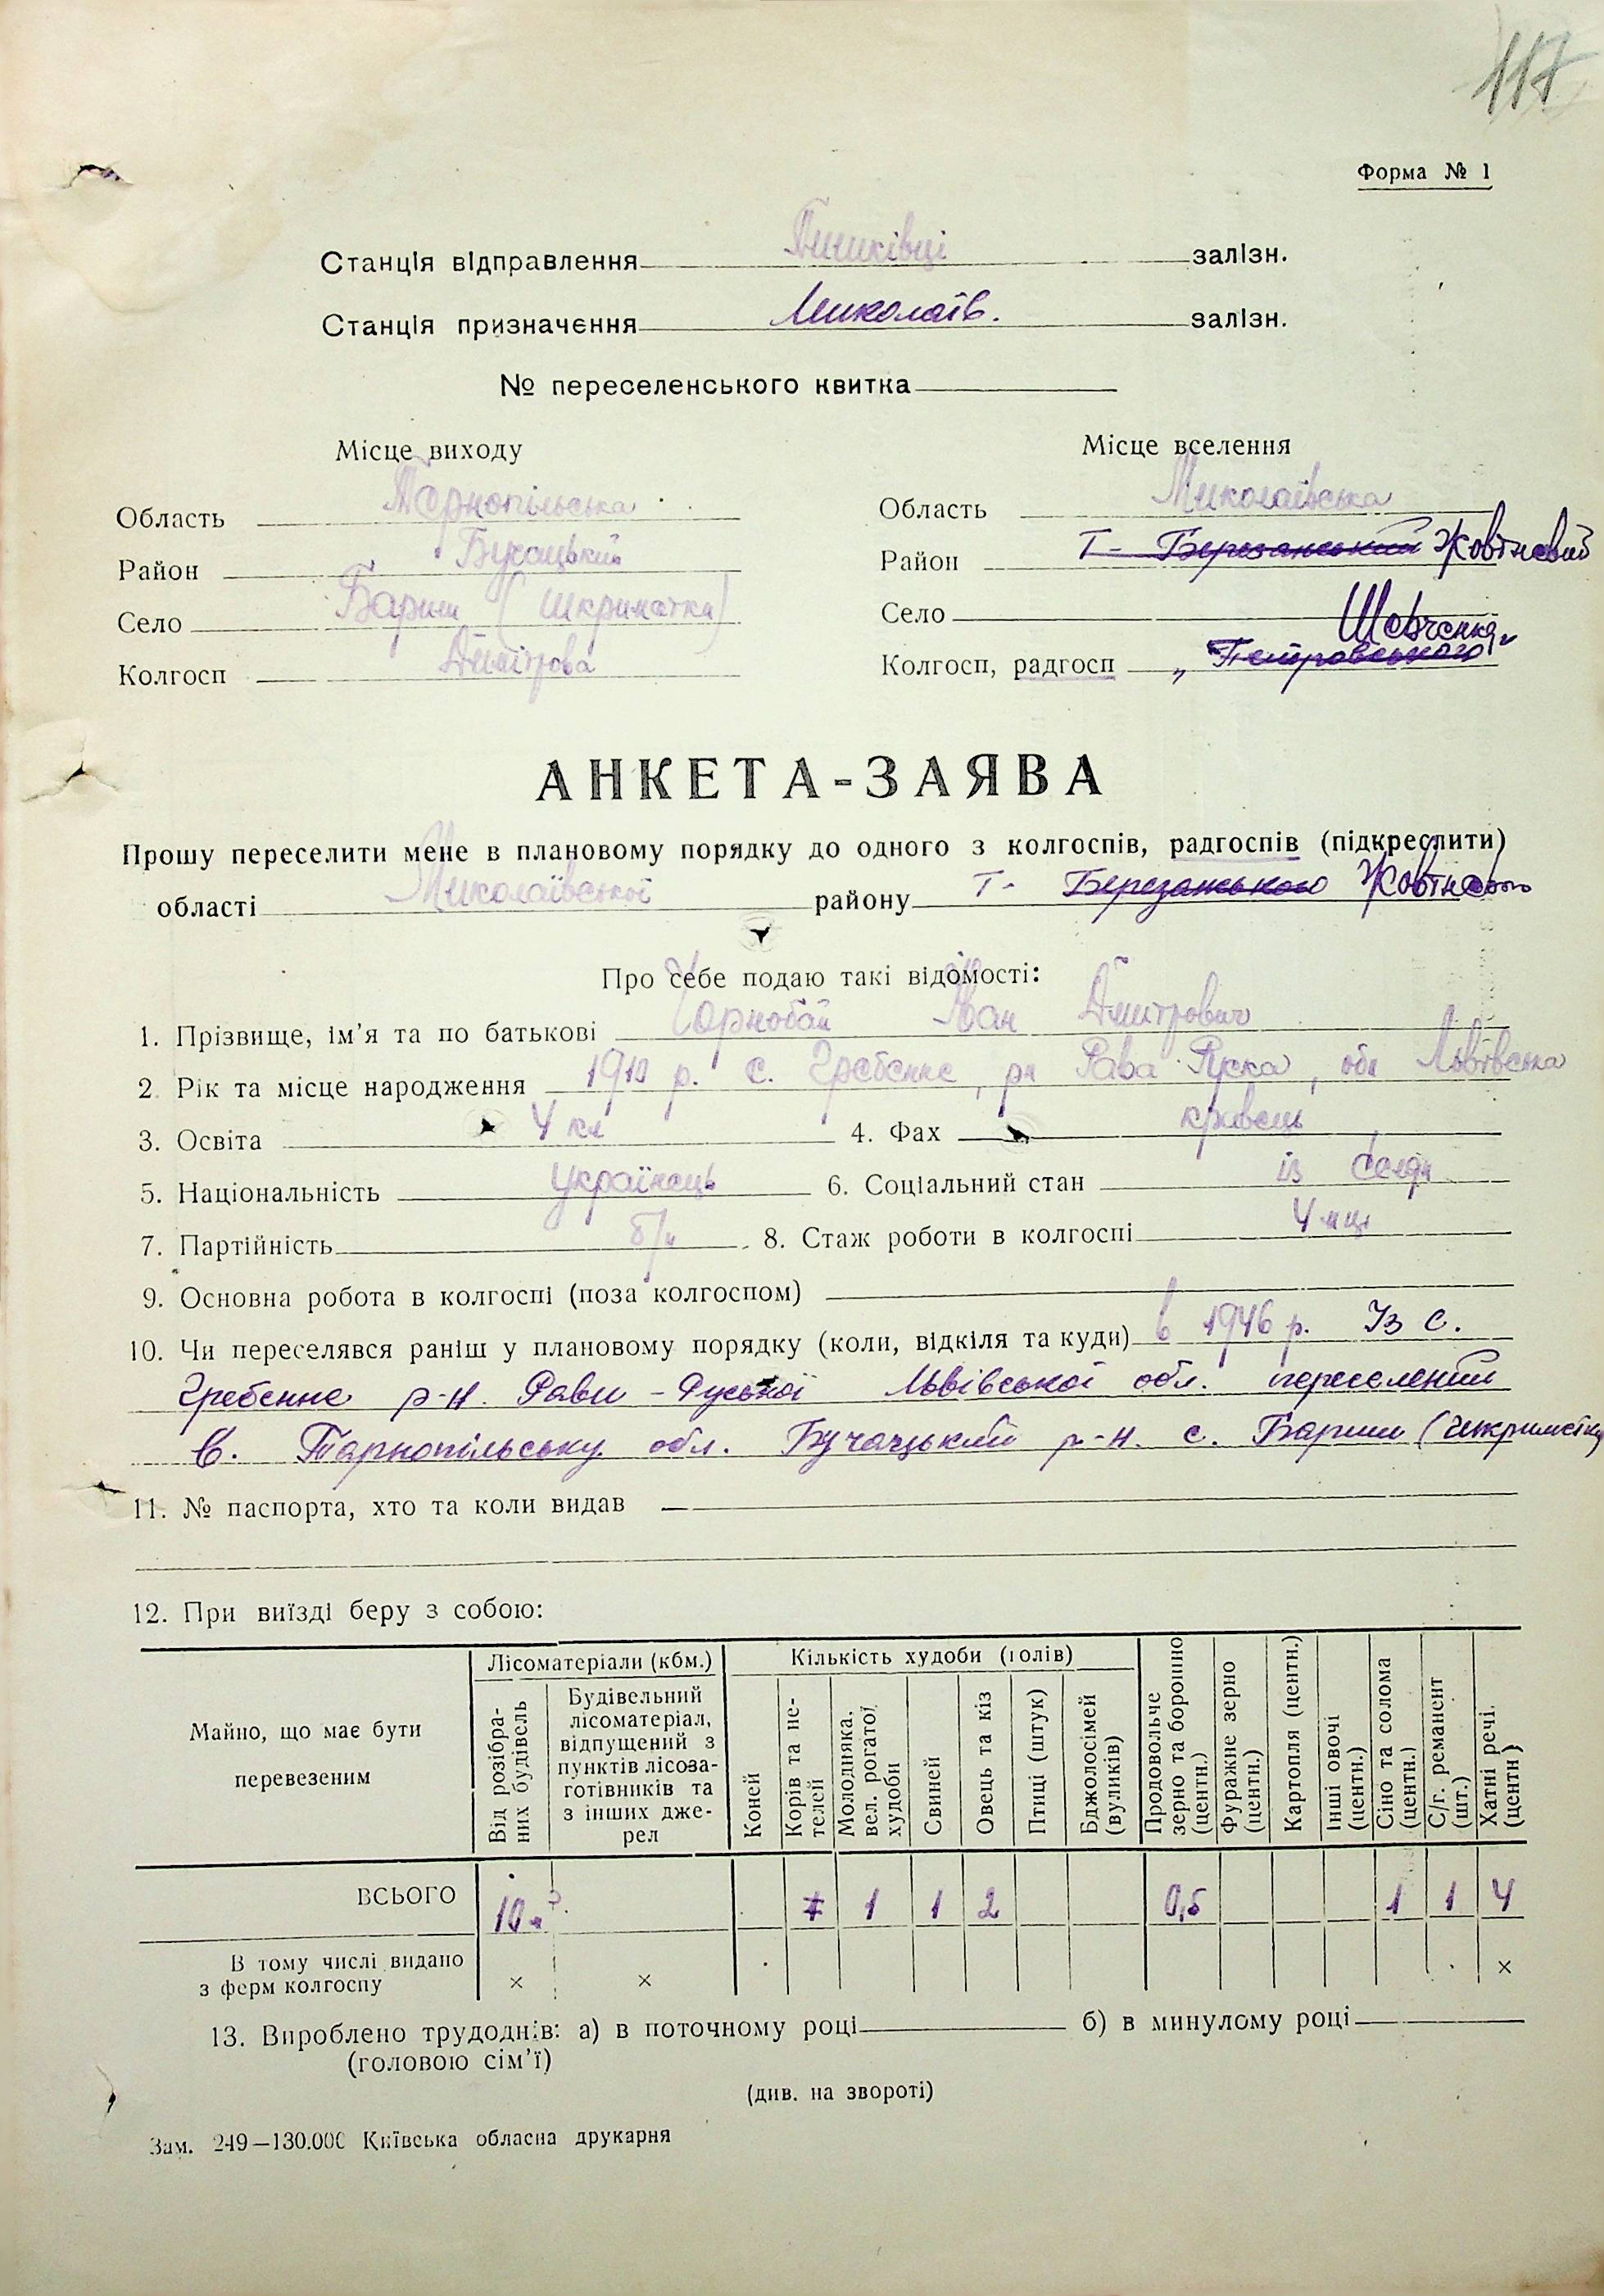 117
Форма № 1
Станція відправлення Пишківці залізн.
Станція призначення Миколаїв. залізн.
№ переселенського квитка
Місце виходу Місце вселення
Область Тернопільська Область Миколаївська
Район Бучацький Район Т- Березанський Жовтневий
Село Бариш (Шкриматка) Село
Колгосп Димітрова Колгосп, радгосп Шевченка „Петровського"
АНКЕТА-ЗАЯВА
Прошу переселити мене в плановому порядку до одного з колгоспів, радгоспів (підкреслити)
області Миколаївської району Т- Березанського Жовтневого
Про себе подаю такі відомості:
1. Прізвище, ім'я та по батькові Чорнобай Іван Дмитрович
2. Рік та місце народження 1912 р. с. Гребенне, рн Рава Руска, обл Львівська
3. Освіта 4 кл 4. Фах кравець
5. Національність Українець 6. Соціальний стан із селян
7. Партійність б/п 8. Стаж роботи в колгоспі 4 міц
9. Основна робота в колгоспі (поза колгоспом)
10. Чи переселявся раніш у плановому порядку (коли, відкіля та куди) в 1946 р. Із с.
Гребенне р-н. Рави-Руської Львівської обл. переселений
в. Тарнопільську обл. Бучацький р-н. с. Бариш (Шкриматка
11. № паспорта, хто та коли видав
12. При виїзді беру з собою:
Майно, що має бути перевезеним
Лісоматеріали (кбм.)
Від розібраних будівель
Будівельний лісоматеріал, відпущений з пунктів лісозаготівників та з інших джерел
Кількість худоби (голів)
Коней
Корів та нетелей
Молодняка. вел. рогатої худоби
Свиней
Овець та кіз
Птиці (штук)
Бджолосімей (вуликів)
Продовольче зерно та борошно (центн.)
Фуражне зерно (центн.)
Картопля (центн.)
Інші овочі (центн.)
Сіно та солома (центн.)
С/г. реманент (шт.)
Хатні речі. (центн)
ВСЬОГО 10 м³. 1 1 1 2 0,5 1 1 4
В тому числі видано
з ферм колгоспу × × ×
13. Вироблено трудоднів: а) в поточному році б) в минулому році
(головою сім'ї)
(див. на звороті)
Зам. 249—130.000 Київська обласна друкарня